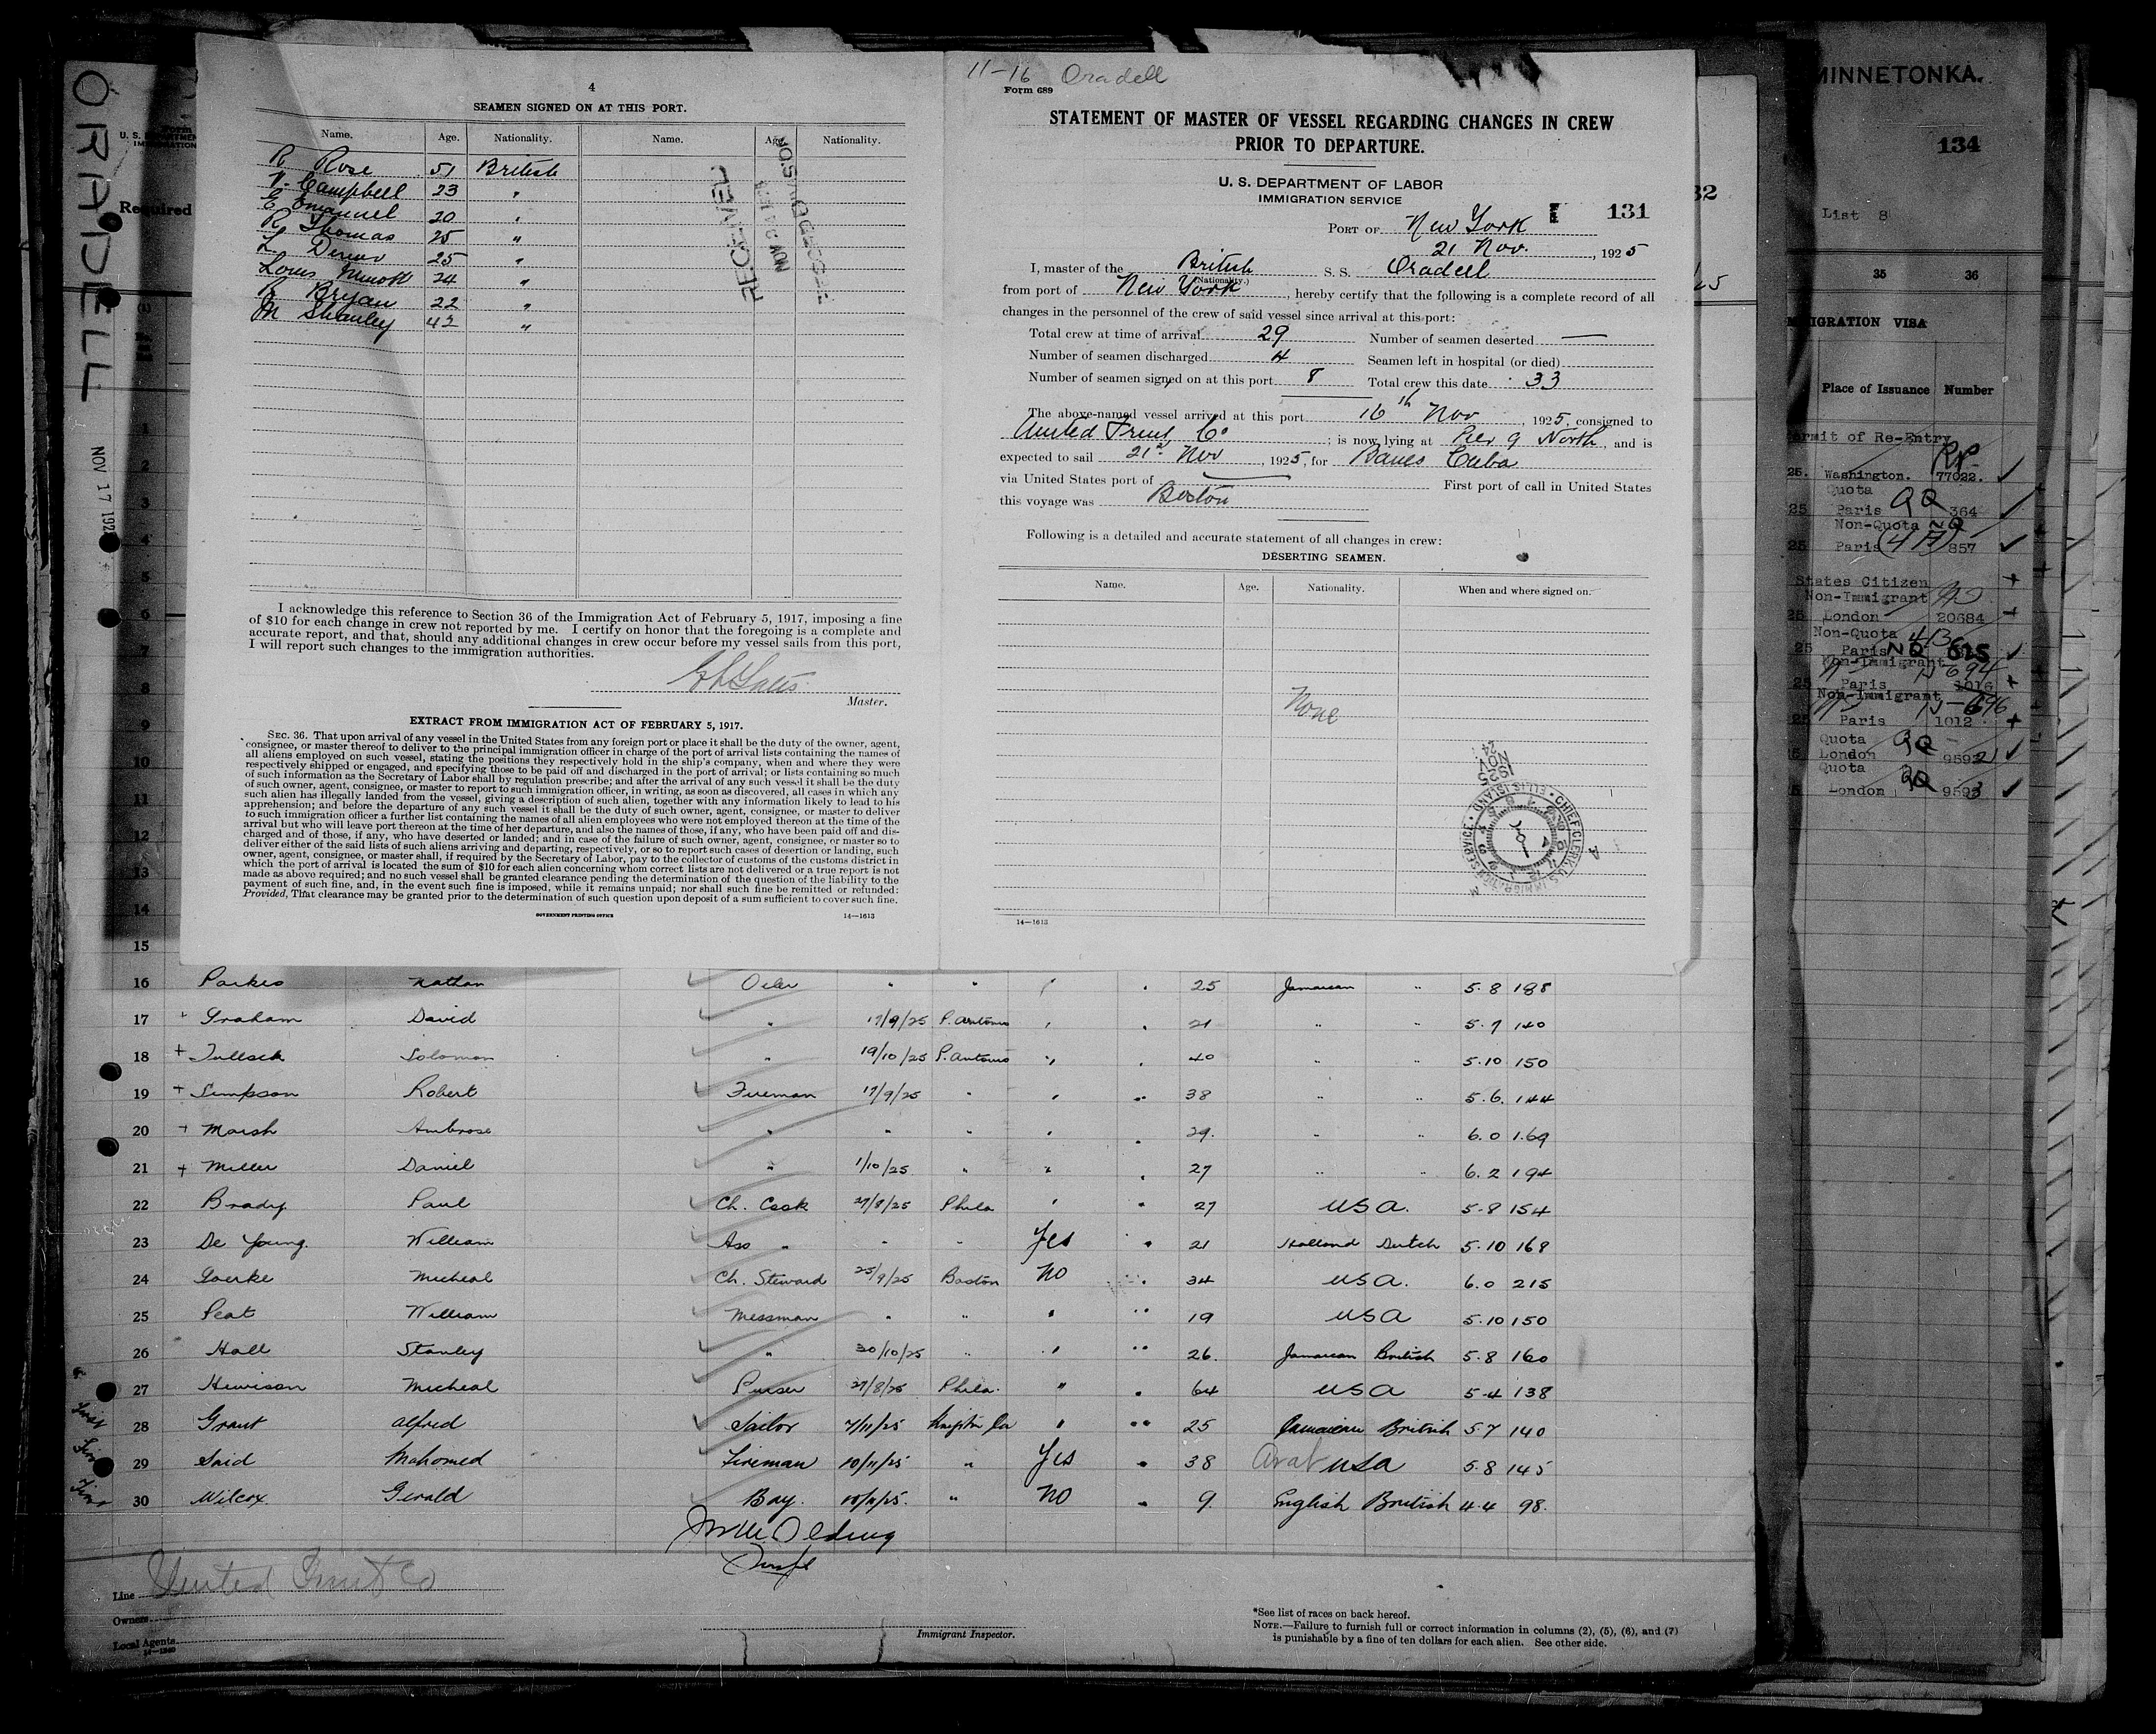 ORADELL
U. S. DEPARTMEN
Required
NOV 17 192
4
SEAMEN SIGNED ON AT THIS PORT.
Name. Age. Nationality. Name. Age. Nationality.
R. Rose 51 British
Campbell 23 "
E Emanuel 20 "
R Thomas 25 "
L. 25 "
Louis 24 "
R Bryan 22 "
M Shanley 42 "
RECEIVED
NOV 24
I acknowledge this reference to Section 36 of the Immigration Act of February 5, 1917, imposing a fine
of $10 for each change in crew not reported by me. I certify on honor that the foregoing is a complete and
accurate report, and that, should any additional changes in crew occur before my vessel sails from this port,
I will report such changes to the immigration authorities.
Master.
EXTRACT FROM IMMIGRATION ACT OF FEBRUARY 5, 1917.
SEC. 36. That upon arrival of any vessel in the United States from any foreign port or place it shall be the duty of the owner, agent,
consignee, or master thereof to deliver to the principal immigration officer in charge of the port of arrival lists containing the names of
all aliens employed on such vessel, stating the positions they respectively hold in the ship's company, when and where they were
respectively shipped or engaged, and specifying those to be paid off and discharged in the port of arrival; or lists containing so much
of such information as the Secretary of Labor shall by regulation prescribe; and after the arrival of any such vessel it shall be the duty
of such owner, agent, consignee, or master to report to such immigration officer, in writing, as soon as discovered, all cases in which any
such alien has illegally landed from the vessel, giving a description of such alien, together with any information likely to lead to his
apprehension; and before the departure of any such vessel it shall be the duty of such owner, agent, consignee, or master to deliver
to such immigration officer a further list containing the names of all alien employees who were not employed thereon at the time of the
arrival but who will leave port thereon at the time of her departure, and also the names of those, if any, who have been paid off and dis-
charged and of those, if any, who have deserted or landed; and in case of the failure of such owner, agent, consignee, or master so to
deliver either of the said lists of such aliens arriving and departing, respectively, or so to report such cases of desertion or landing, such
owner, agent, consignee, or master shall, if required by the Secretary of Labor, pay to the collector of customs of the customs district in
which the port of arrival is located the sum of $10 for each alien concerning whom correct lists are not delivered or a true report is not
made as above required; and no such vessel shall be granted clearance pending the determination of the question of the liability to the
payment of such fine, and, in the event such fine is imposed, while it remains unpaid; nor shall such fine be remitted or refunded:
Provided, That clearance may be granted prior to the determination of such question upon deposit of a sum sufficient to cover such fine.
GOVERNMENT PRINTING OFFICE 14—1613
11-16 Oradell
Form 689
STATEMENT OF MASTER OF VESSEL REGARDING CHANGES IN CREW
PRIOR TO DEPARTURE.
U. S. DEPARTMENT OF LABOR
IMMIGRATION SERVICE
131
PORT OF New York
21 Nov. , 1925
I, master of the British S. S. Oradell
(Nationality.)
from port of New York , hereby certify that the following is a complete record of all
changes in the personnel of the crew of said vessel since arrival at this port:
Total crew at time of arrival 29 Number of seamen deserted —
Number of seamen discharged 4 Seamen left in hospital (or died)
Number of seamen signed on at this port 8 Total crew this date 33
The above-named vessel arrived at this port 16th Nov , 1925, consigned to
United Fruit Co ; is now lying at Pier 9 North, and is
expected to sail 21st Nov , 1925, for Banes Cuba
via United States port of — First port of call in United States
this voyage was Boston
Following is a detailed and accurate statement of all changes in crew:
DESERTING SEAMEN.
Name. Age. Nationality. When and where signed on.
None
1925 NOV 24
CHIEF CLERK U.S. IMMIGRATION SERVICE • ELLIS ISLAND •
14—1613
1
2
3
4
5
6
7
8
9
10
11
12
13
14
15
16 Parkes Nathan Oiler " " " " 25 Jamaican " 5.8 188
17 + Graham David " 17/9/25 P. Antonio " " 21 " " 5.7 140
18 + Tulloch Solomon " 19/10/25 P. Antonio " " 40 " " 5.10 150
19 + Simpson Robert Fireman 17/9/25 " " " 38 " " 5.6. 144
20 + Marsh Ambrose " " " " " 29. " " 6.0 169
21 + Miller Daniel " 1/10/25 " " " 27 " " 6.2 194
22 Brady Paul Ch. Cook 27/8/25 Phila " " 27 USA. 5.8 154
23 De Young. William Ass " " " Yes " 21 Holland Dutch 5.10 168
24 Goerke Micheal Ch. Steward 25/9/25 Boston No " 34 USA. 6.0 215
25 Peat William Messman " " " " 19 USA 5.10 150
26 Hall Stanley " 30/10/25 " " " 26. Jamaican British 5.8 160
27 Hewison Micheal Purser 27/8/25 Phila. " " 64 USA 5.4 138
28 Grant Alfred Sailor 7/11/25 Kingston Ja " " 25 Jamaican British 5.7 140
29 Said Mahomed Fireman 10/11/25 " Yes " 38 Arab USA 5.8 145
30 Wilcox. Gerald Boy. 10/11/25. " No " 9 English British 4.4 98.
Line United Fruit Co
Owners
Local Agents
14—1240
Immigrant Inspector.
*See list of races on back hereof.
NOTE.—Failure to furnish full or correct information in columns (2), (5), (6), and (7)
is punishable by a fine of ten dollars for each alien. See other side.
MINNETONKA.
134
List 8
35 36
MIGRATION VISA
Place of Issuance Number
ermit of Re-Entry
25. Washington. 77022.
Quota
25 Paris QQ 364
Non-Quota NQ
25 Paris (4 A) 857
States Citizen
Non-Immigrant
25 London 20684
Non-Quota
25 Paris NQ 615
Non-Immigrant
25 Paris 1016
Non-Immigrant
25 Paris 1012
Quota QQ
5 London 9592
Quota QQ
5 London 9593